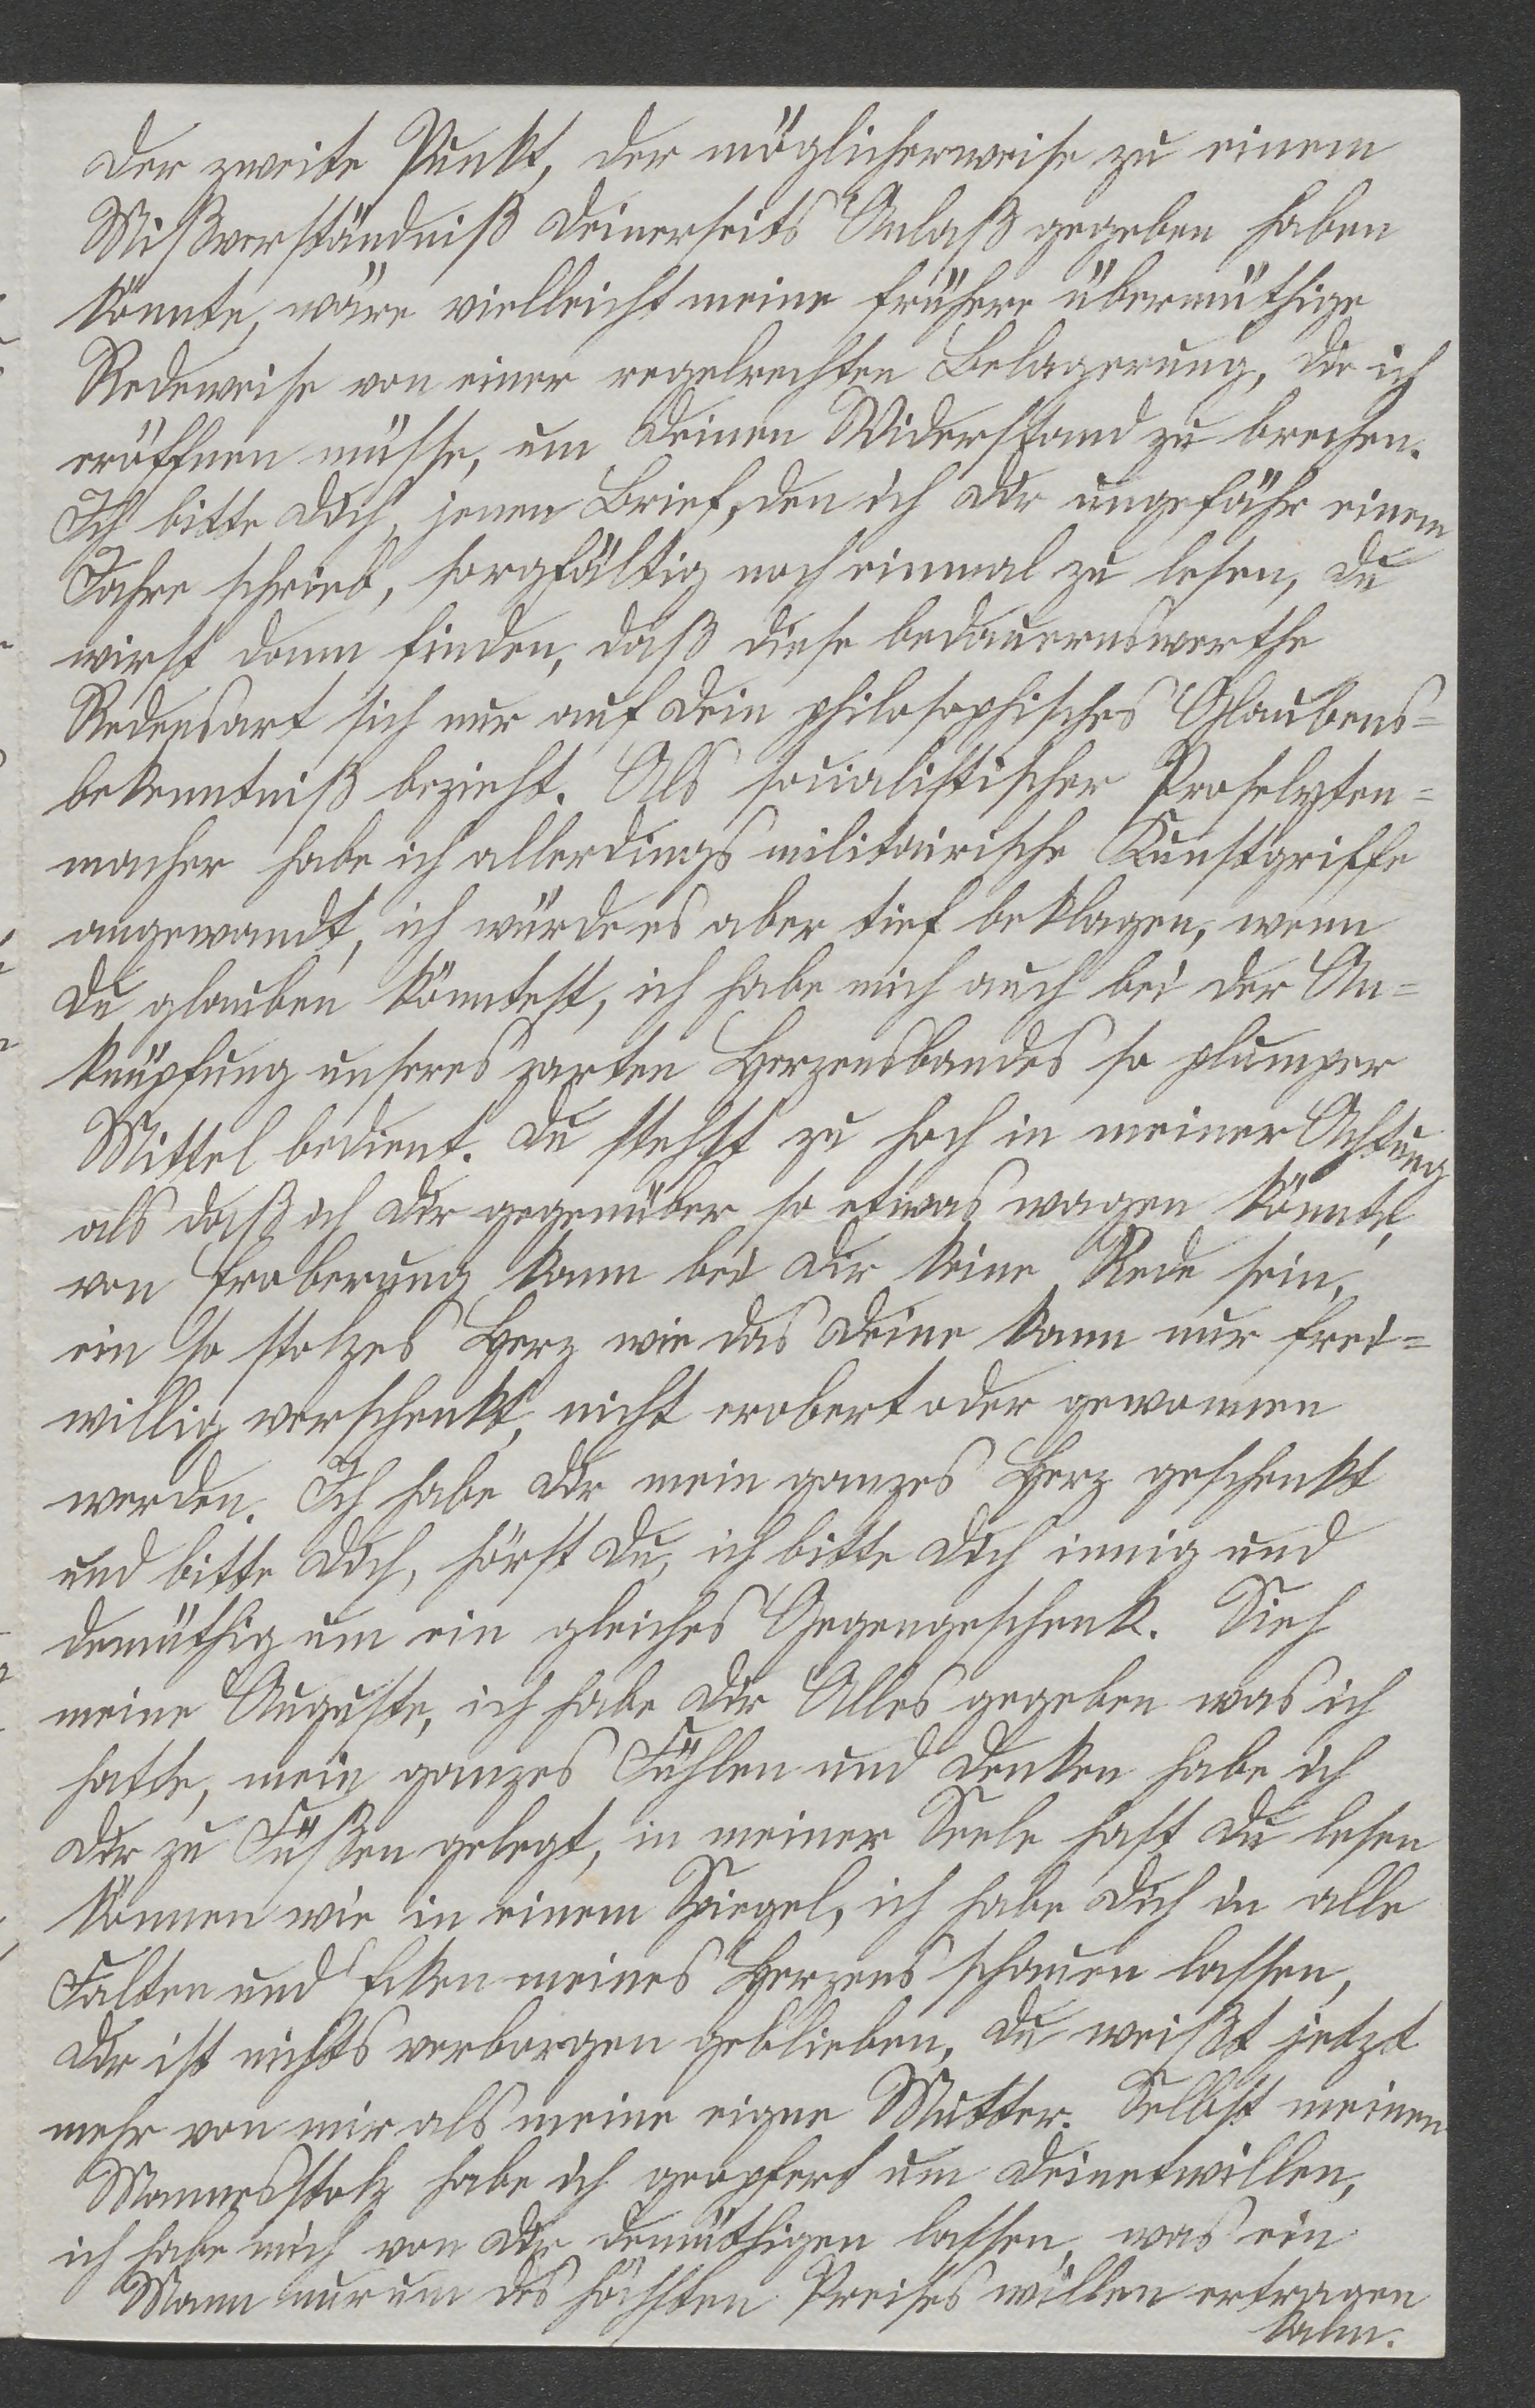 Der zweite Punkt, der möglicherweise zu einem
Mißverständniß Deinerseits Anlaß gegeben haben
könnte, wäre vielleicht meine frühere übermüthige
Redeweise von einer regelrechten Belagerung, die ich
eröffnen müsse, um Deinen Widerstand zu brechen.
Ich bitte Dich, jenen Brief, den ich Dir ungefähr einem
Jahre schrieb, sorgfältig noch einmal zu lesen, Du
wirst dann finden, daß diese bedauernswerthe
Redensart sich nur auf Dein philosophisches Glaubens=
bekenntniß bezieht. Als socialistischer Proselyten=
macher habe ich allerdings militairische Kunstgriffe
angewandt, ich würde es aber tief beklagen, wenn
Du glauben könntest, ich habe mich auch bei der An=
knüpfung unseres zarten Herzensbandes so plumper
Mittel bedient. Du stehst zu hoch in meiner Achtung
als daß ich Dir gegenüber so etwas wagen könnte,
von Eroberung kann bei Dir keine Rede sein,
ein so stolzes Herz wie das Deine kann nur frei=
willig verschenkt, nicht erobert oder gewonnen
werden. Ich habe Dir mein ganzes Herz geschenkt
und bitte Dich, hörst Du, ich bitte Dich innig und
demüthig um ein gleiches Gegengeschenk. Sieh
meine Auguste, ich habe Dir Alles gegeben was ich
hatte, mein ganzes Fühlen und Denken habe ich
Dir zu Füßen gelegt, in meiner Seele hast Du lesen
können wie in einem Spiegel, ich habe Dich in alle
Falten und Ecken meines Herzens schauen lassen,
Dir ist nichts verborgen geblieben, Du weißt jetzt
mehr von mir als meine eigne Mutter. Selbst meinen
Mannesstolz habe ich geopfert um Deinetwillen,
ich habe mich von Dir demüthigen lassen, was ein
Mann nur um des höchsten Preises willen ertragen
kann.